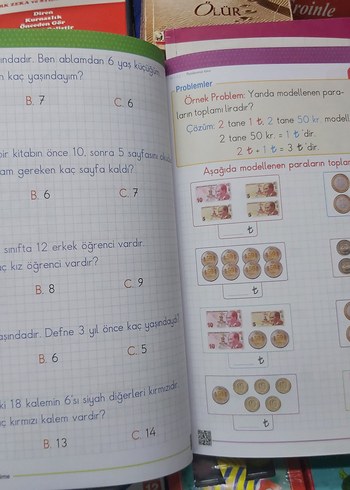 Diren
Kurnazlık
Önceden Gör
ÖLÜR
roinle
ındadır. Ben ablamdan 6 yaş küçüğüm
kaç yaşındayım?
B. 7
C. 6
bir kitabın önce 10, sonra 5 sayfasını
am gereken kaç sayfa kaldı?
B. 6
C. 7
sınıfta 12 erkek öğrenci vardır.
aç kız öğrenci vardır?
B. 8
C. 9
aşındadır. Defne 3 yıl önce kaç yaşındaydı
B. 6
C. 5
ki 18 kalemin 6'sı siyah diğerleri kırmızıdır.
ç kırmızı kalem vardır?
B. 13
C. 14
Problemler
Örnek Problem: Yanda modellenen para-
ların toplamı liradır?
Çözüm: 2 tane 1 ₺, 2 tane 50 kr. modell
2 tane 50 kr. = 1 ₺'dir.
2 ₺ + 1 ₺ = 3 ₺'dir.
Aşağıda modellenen paraların toplam
₺
₺
₺
₺